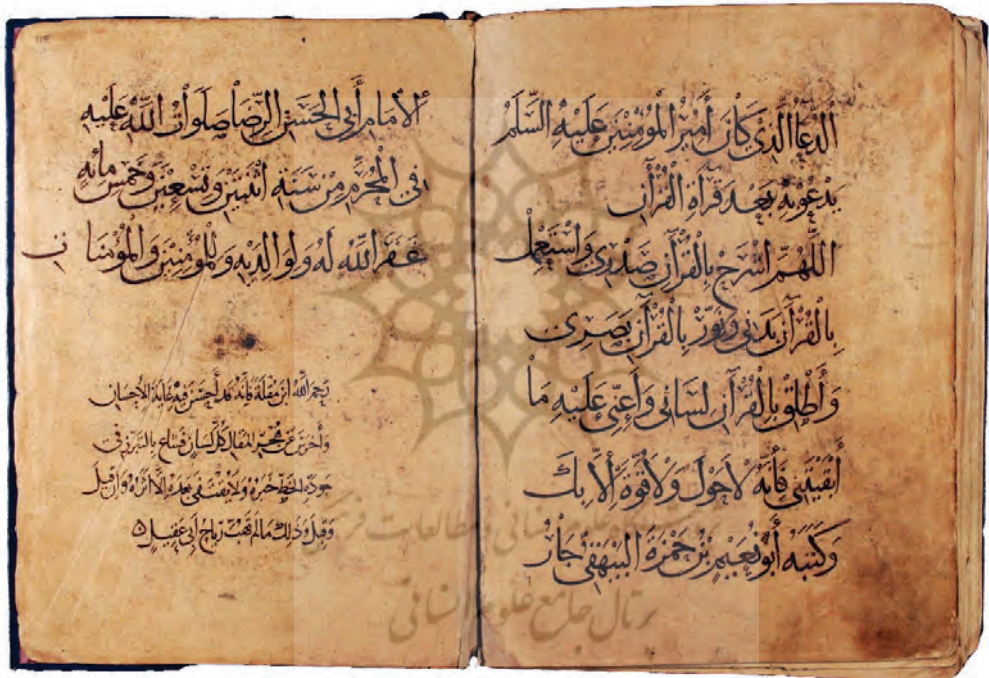 الدعا الذي كان أمير المؤمنين عليه السلم
يدعو به بعد قرآة القرآن
اللهم اشرح بالقرآن صدري واستعمل
بالقرآن بدني ونور بالقرآن بصري
وأطلق بالقرآن لساني وأعني عليه ما
أبقيتني فانه لا حول ولا قوة إلا بك
وكتبه أبو نعيم بن حمزة البيهقي جار
الامام أبي الحسن الرضا صلوات الله عليه
في المحرم من سنة اثنتين وتسعين وخمس مائه
غفر الله له ولوالديه وللمؤمنين والمؤمنات
رحم الله ابن مقلة فانه قد أحسن فيه غاية الاحسان
وأخرس عن المقال كل لسان
جودة الخط خبره ولا يقتفى بعده الا أثره وان قيل
وقيل وذلك مالم تهب رياح أبي عقيل
پرتال جامع علوم انسانی